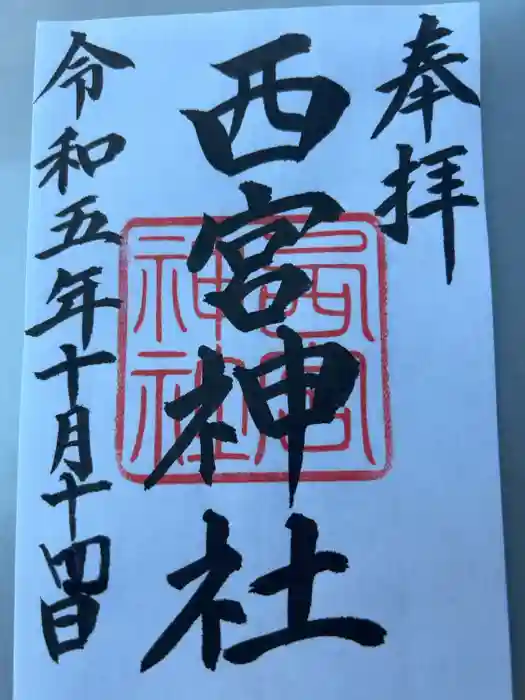 奉拝
西宮神社
西宮神社
令和五年十月十四日